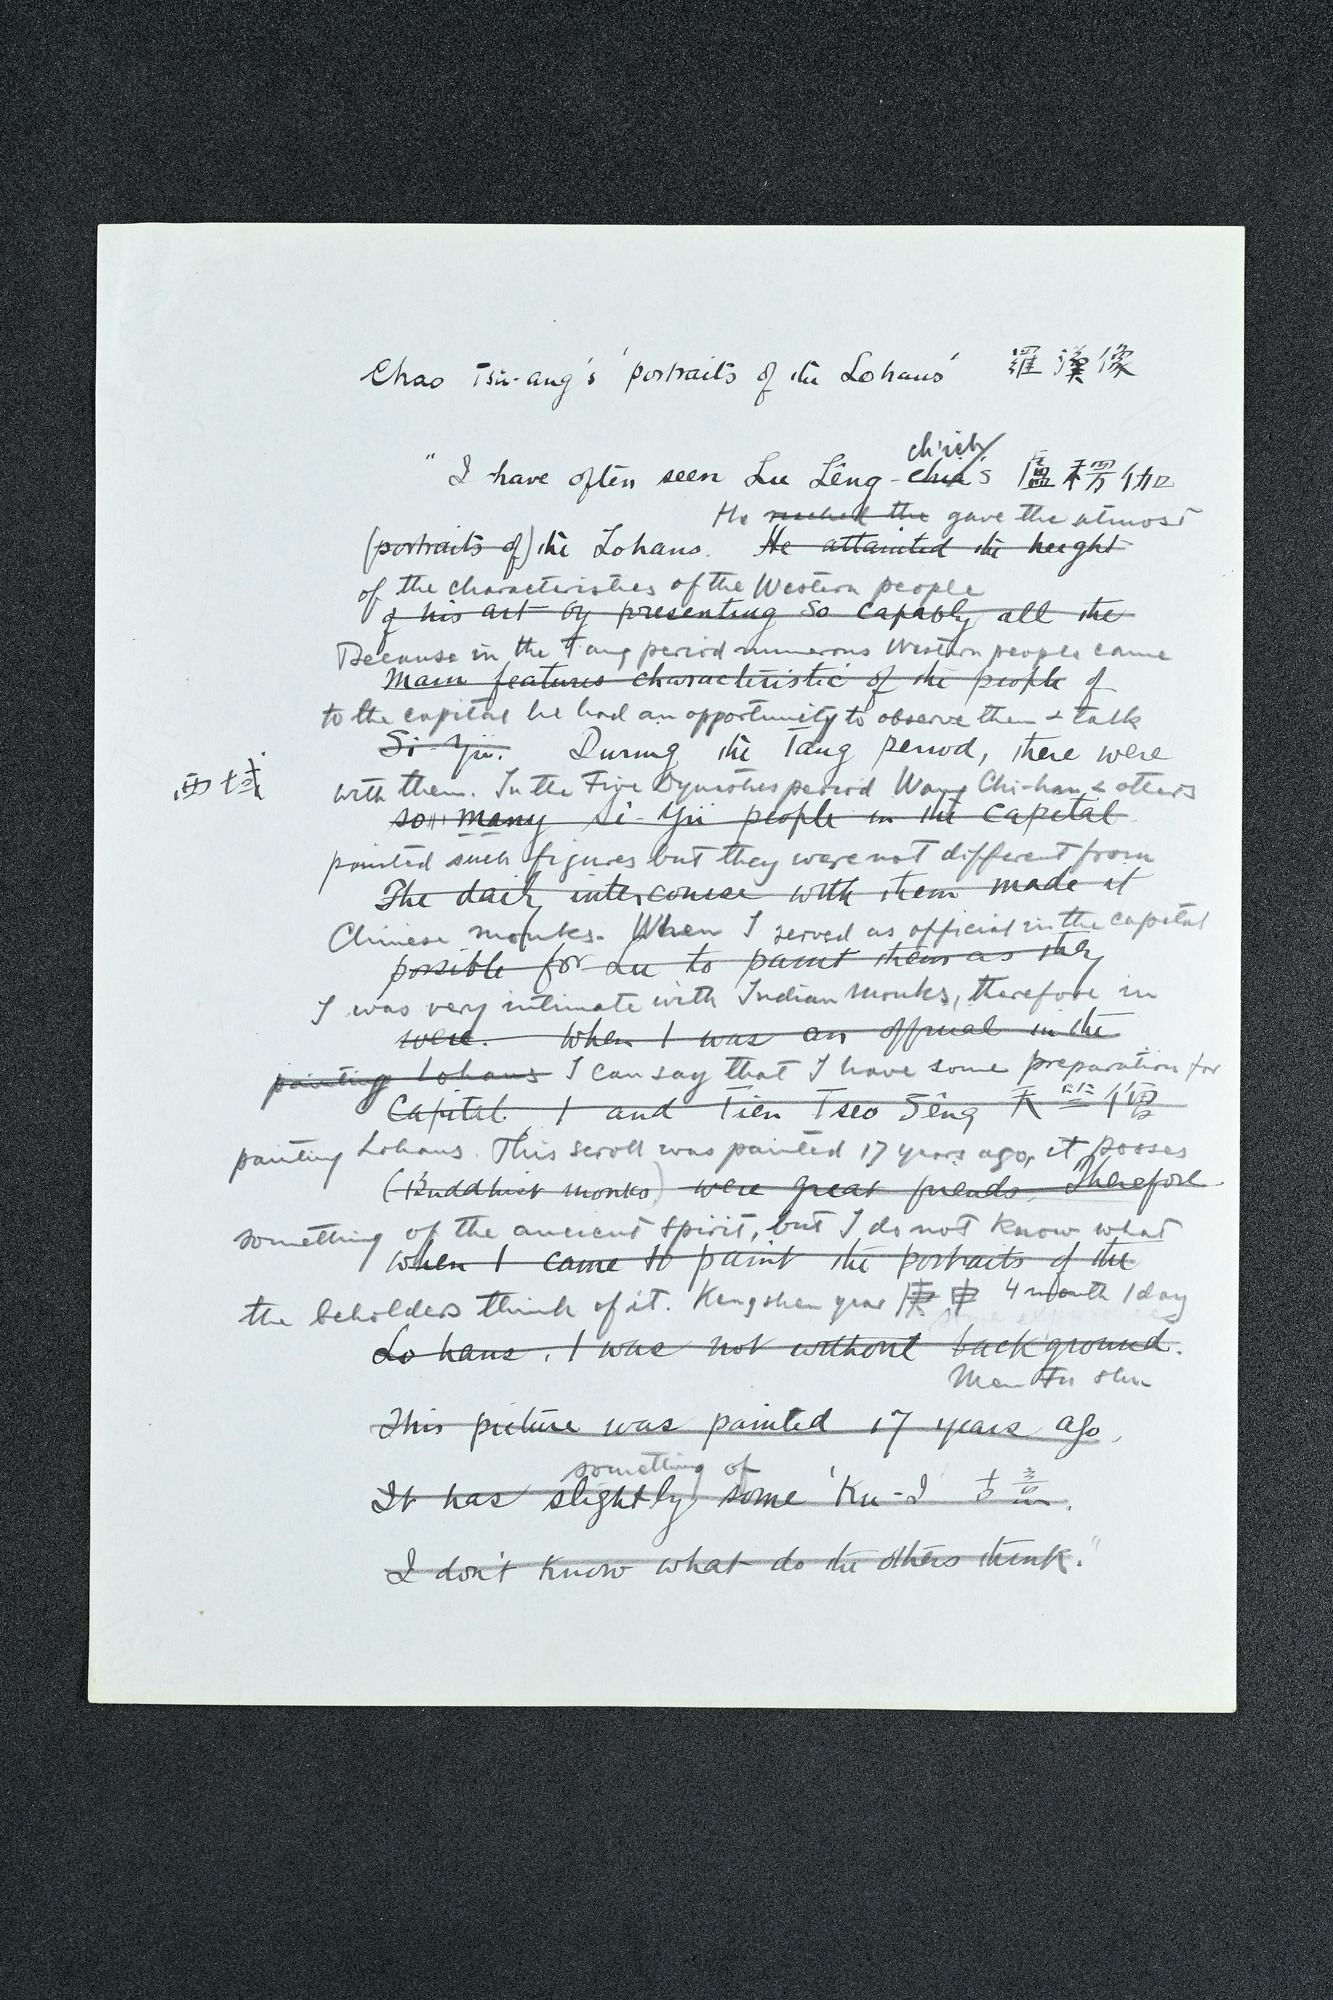 Chao Tsu-ang's 'portraits of the Lohans' 羅漢像
ch'ieh
" I have often seen Lu Lêng-cha's 盧楞伽
He reached the gave the utmost
(portraits of) the Lohans. He attainted the height
of the characteristics of the Western people
of his art by presenting so capably all the
Because in the Tang period numerous Western people came
main features characteristic of the people of
to the capital he had an opportunity to observe them & talk
Si Yü. During the Tang period, there were
西域
with them. In the Five Dynasties period Wang Chi-han & others
so many Si-Yü people in the Capital
painted such figures but they were not different from
The daily intercourse with them made it
Chinese monks. When I served as official in the capital
possible for Lu to paint them as they
I was very intimate with Indian monks, therefore in
were. When I was an official in the
painting Lohans I can say that I have some preparation for
Capital. I and Tien Tseo Sêng 天竺僧
painting Lohans. This scroll was painted 17 years ago, it posses
(Buddhist monks) were great friends. Therefore
something of the ancient spirit, but I do not know what
when I came to paint the portraits of the
the beholders think of it. Kengshen year 庚申 4 month 1 day
Lohans, I was not without background.
This picture was painted 17 years ago,
something of
It has slightly some 'Ku-I' 古意.
I don't know what do the others think."